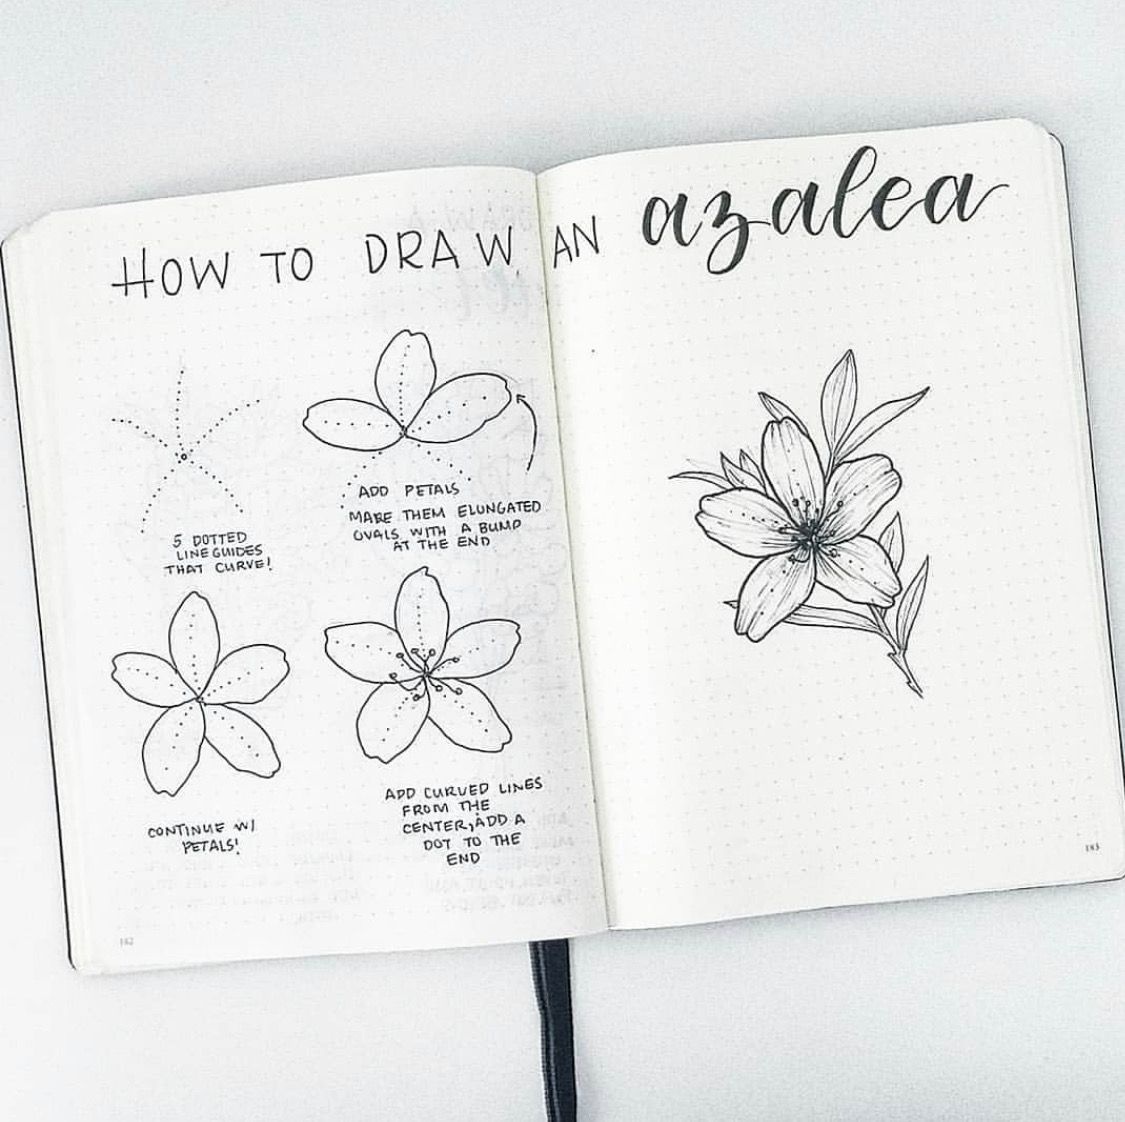 HOW TO DRAW AN azalea
5 DOTTED
LINE GUIDES
THAT CURVE!
ADD PETALS
MAKE THEM ELONGATED
OVALS WITH A BUMP
AT THE END
CONTINUE W/
PETALS!
ADD CURVED LINES
FROM THE
CENTER, ADD A
DOT TO THE
END
182
183